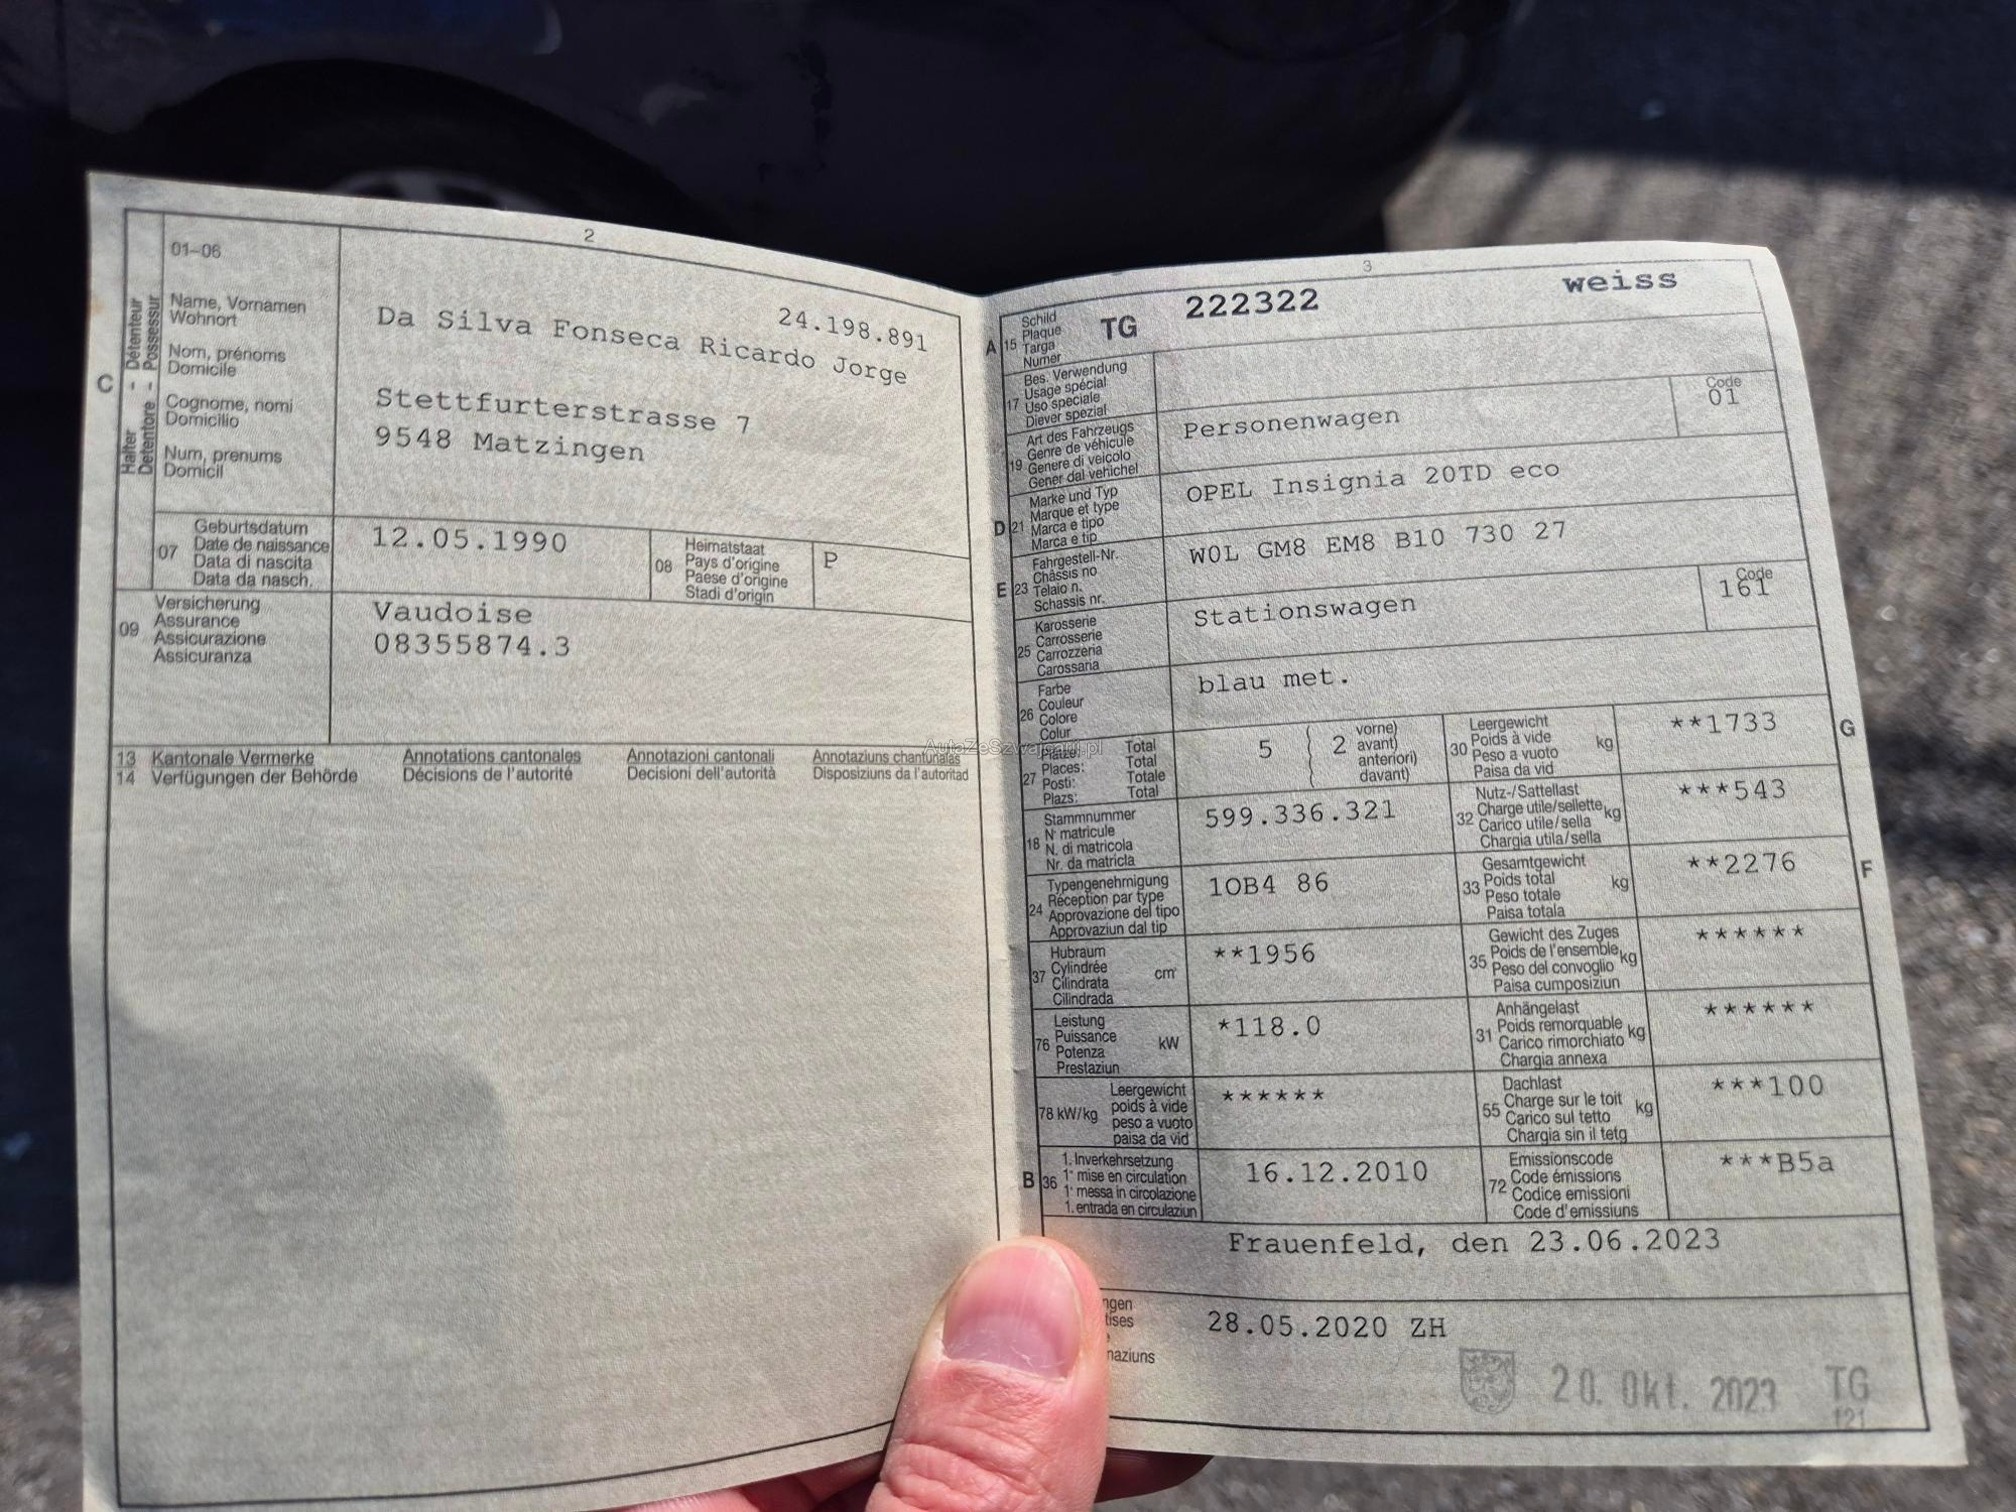 2
01–06
Name, Vornamen
Wohnort
Nom, prénoms
Domicile
Cognome, nomi
Domicilio
Num, prenums
Domicil
C
Halter - Détenteur
Detentore - Possessur
24.198.891
Da Silva Fonseca Ricardo Jorge
Stettfurterstrasse 7
9548 Matzingen
07
Geburtsdatum
Date de naissance
Data di nascita
Data da nasch.
12.05.1990
08
Heimatstaat
Pays d'origine
Paese d'origine
Stadi d'origin
P
09
Versicherung
Assurance
Assicurazione
Assicuranza
Vaudoise
08355874.3
13 Kantonale Vermerke Annotations cantonales Annotazioni cantonali Annotaziuns chantunalas
14 Verfügungen der Behörde Décisions de l'autorité Decisioni dell'autorità Disposiziuns da l'autoritad
AutaZeSzwajcarii.pl
3
A 15
Schild
Plaque
Targa
Numer
TG 222322 weiss
17
Bes. Verwendung
Usage spécial
Uso speciale
Diever spezial
19
Art des Fahrzeugs
Genre de véhicule
Genere di veicolo
Gener dal vehichel
Personenwagen
Code
01
D 21
Marke und Typ
Marque et type
Marca e tipo
Marca e tip
OPEL Insignia 20TD eco
E 23
Fahrgestell-Nr.
Châssis no
Telaio n.
Schassis nr.
W0L GM8 EM8 B10 730 27
25
Karosserie
Carrosserie
Carrozzeria
Carossaria
Stationswagen
Code
161
26
Farbe
Couleur
Colore
Colur
blau met.
27
Plätze: Total
Places: Total
Posti: Totale
Plazs: Total
5 ( 2 vorne)
avant)
anteriori)
davant)
30
Leergewicht
Poids à vide kg
Peso a vuoto
Paisa da vid
**1733
G
18
Stammnummer
N° matricule
N. di matricola
Nr. da matricla
599.336.321
32
Nutz-/Sattellast
Charge utile/sellette kg
Carico utile/sella
Chargia utila/sella
***543
24
Typengenehmigung
Réception par type
Approvazione del tipo
Approvaziun dal tip
1OB4 86
33
Gesamtgewicht
Poids total kg
Peso totale
Paisa totala
**2276
F
37
Hubraum
Cylindrée cm³
Cilindrata
Cilindrada
**1956
35
Gewicht des Zuges
Poids de l'ensemble kg
Peso del convoglio
Paisa cumposiziun
******
76
Leistung
Puissance kW
Potenza
Prestaziun
*118.0
31
Anhängelast
Poids remorquable kg
Carico rimorchiato
Chargia annexa
******
78 kW/kg
Leergewicht
poids à vide
peso a vuoto
paisa da vid
******
55
Dachlast
Charge sur le toit kg
Carico sul tetto
Chargia sin il tetg
***100
B 36
1. Inverkehrsetzung
1e mise en circulation
1a messa in circolazione
1. entrada en circulaziun
16.12.2010
72
Emissionscode
Code émissions
Codice emissioni
Code d'emissiuns
***B5a
Frauenfeld, den 23.06.2023
ngen
tises
naziuns
28.05.2020 ZH
20. Okt. 2023 TG
121